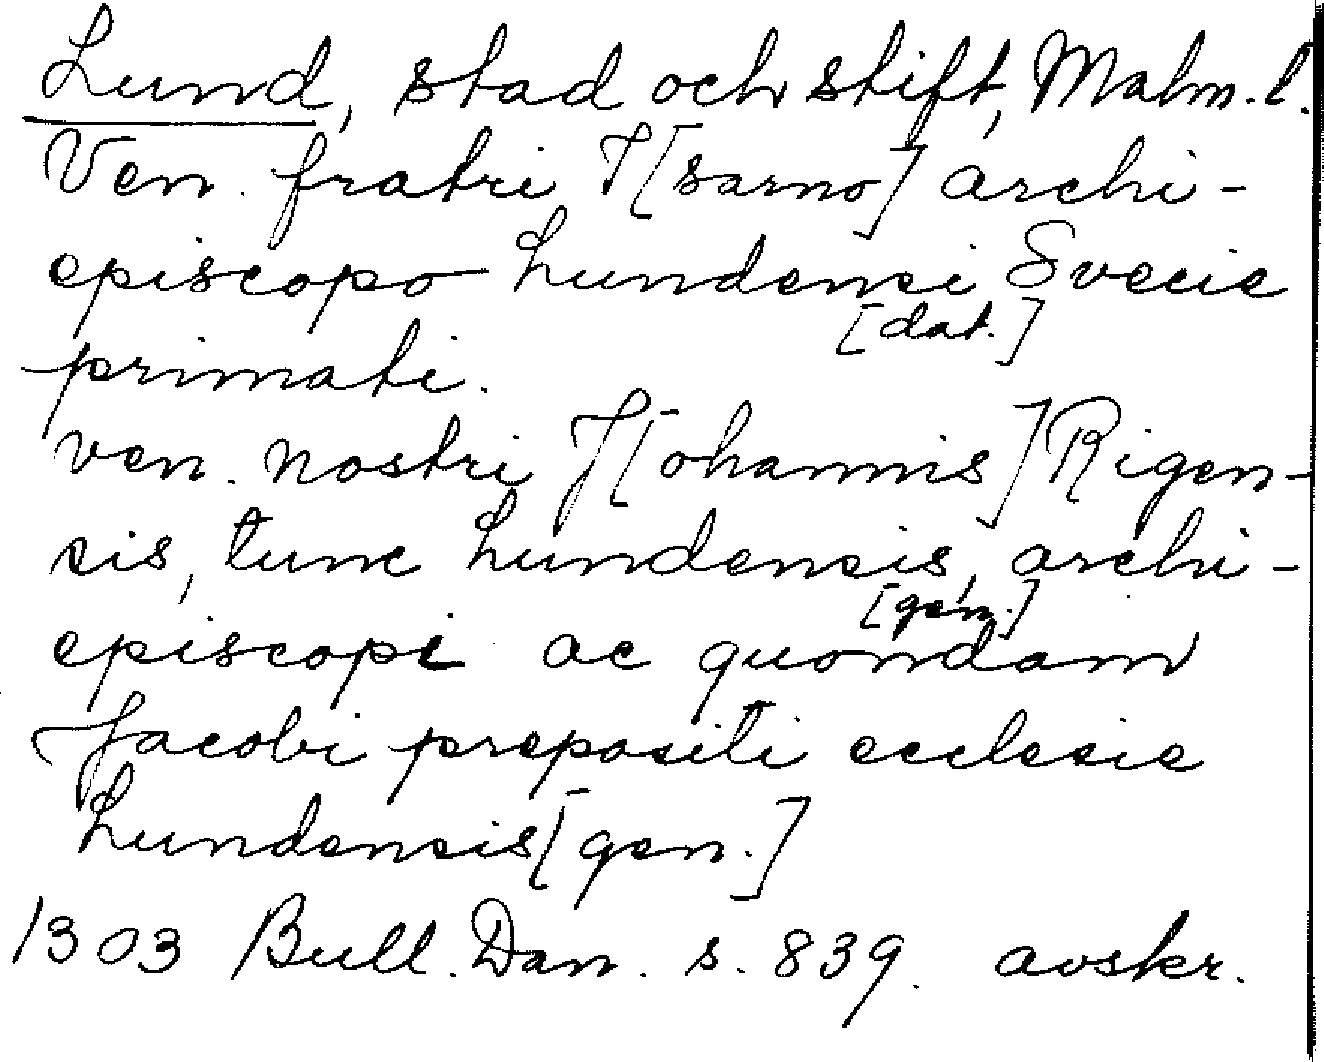 Lund, stad och stift, Malm. l.
Ven. fratri I[sarno] archi-
episcopo Lundensi Svecie
[dat.]
primati.
ven. nostri J[ohannis] Rigen-
sis, tunc Lundensis, archi-
[gen.]
episcopi ac quondam
Jacobi prepositi ecclesie
Lundensis [gen.]
1303 Bull. Dan. s. 839. avskr.